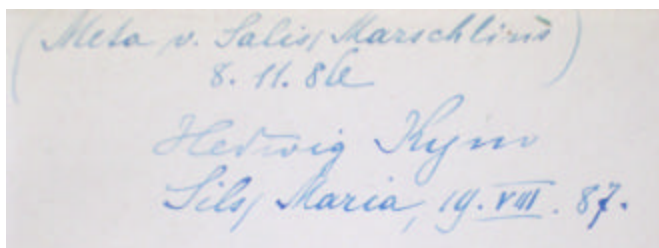 (Meta v. Salis, Marschlins)
8. 11. 86
Hedwig Kym
Sils, Maria, 19. VIII. 87.